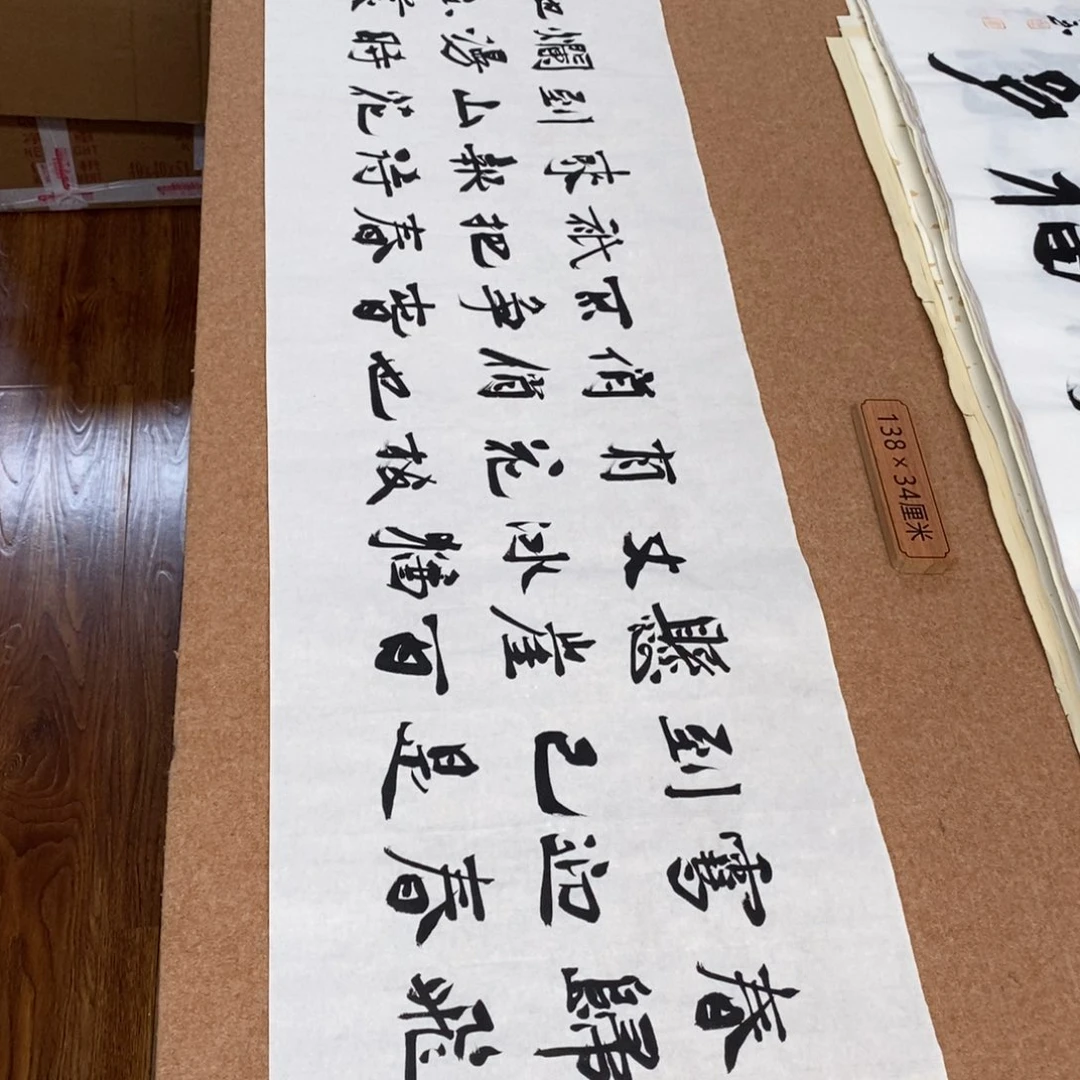 春歸飛
雪迎春
到已是
懸崖百
丈冰猶
有花枝
俏俏也
不爭春
祇把春
來報待
到山花
爛漫時
她在叢
138×34厘米
多福